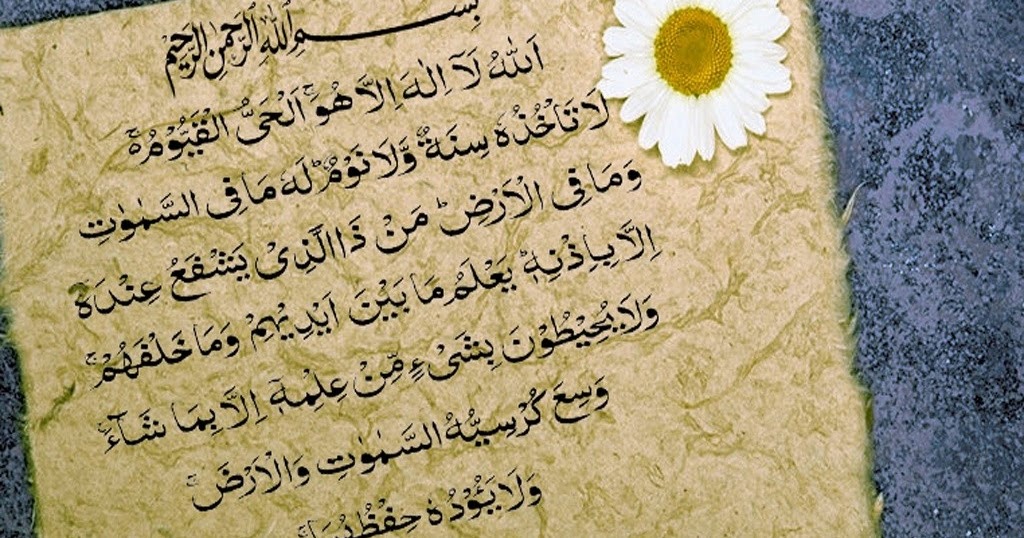 بِسْمِ اللهِ الرَّحْمٰنِ الرَّحِيْمِ
اَللهُ لَآ اِلٰهَ اِلَّا هُوَۚ اَلْحَىُّ الْقَيُّوْمُ ۚ
لَا تَاْخُذُهٗ سِنَةٌ وَّلَا نَوْمٌ ؕ لَهٗ مَا فِى السَّمٰوٰتِ
وَمَا فِى الْاَرْضِ ؕ مَنْ ذَا الَّذِىْ يَشْفَعُ عِنْدَهٗٓ
اِلَّا بِاِذْنِهٖ ؕ يَعْلَمُ مَا بَيْنَ اَيْدِيْهِمْ وَمَا خَلْفَهُمْ ۚ
وَلَا يُحِيْطُوْنَ بِشَىْءٍ مِّنْ عِلْمِهٖٓ اِلَّا بِمَا شَآءَ ۚ
وَسِعَ كُرْسِيُّهُ السَّمٰوٰتِ وَالْاَرْضَ ۚ
وَلَا يَـُٔوْدُهٗ حِفْظُهُمَا ۚ